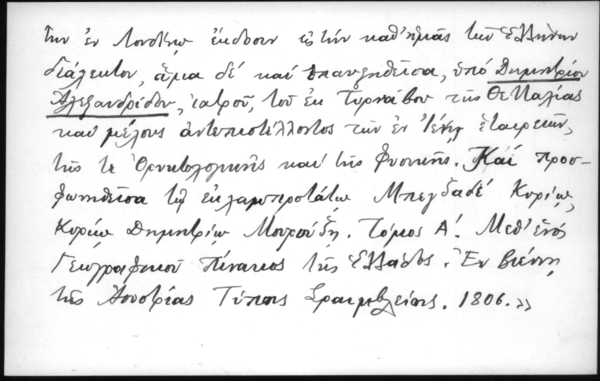 την ἐν Λονδίνῳ ἔκδοσιν εἰς τὴν καθ' ἡμᾶς τῶν Ἑλλήνων
διάλεκτον, ἅμα δέ καί ἐπαυξηθεῖσα, ὑπό Δημητρίου
Ἀλεξανδρίδου, ἰατροῦ, τοῦ ἐκ Τυρνάβου τῆς Θετταλίας
καί μέλους ἀντεπιστέλλοντος τῶν ἐν Ἰένῃ ἑταιρειῶν,
τῆς τε Ὀρυκτολογικῆς καί τῆς Φυσικῆς. Καί προσ-
φωνηθεῖσα τῷ ἐκλαμπροτάτῳ Μπεγζαδέ Κυρίῳ,
Κυρίῳ Δημητρίῳ Μουρούζῃ. Τόμος Α΄. Μεθ' ἑνός
Γεωγραφικοῦ Πίνακος τῆς Ἑλλάδος. Ἐν Βιέννῃ
τῆς Ἀουστρίας Τύποις Σραιμβλικῆς. 1806.»